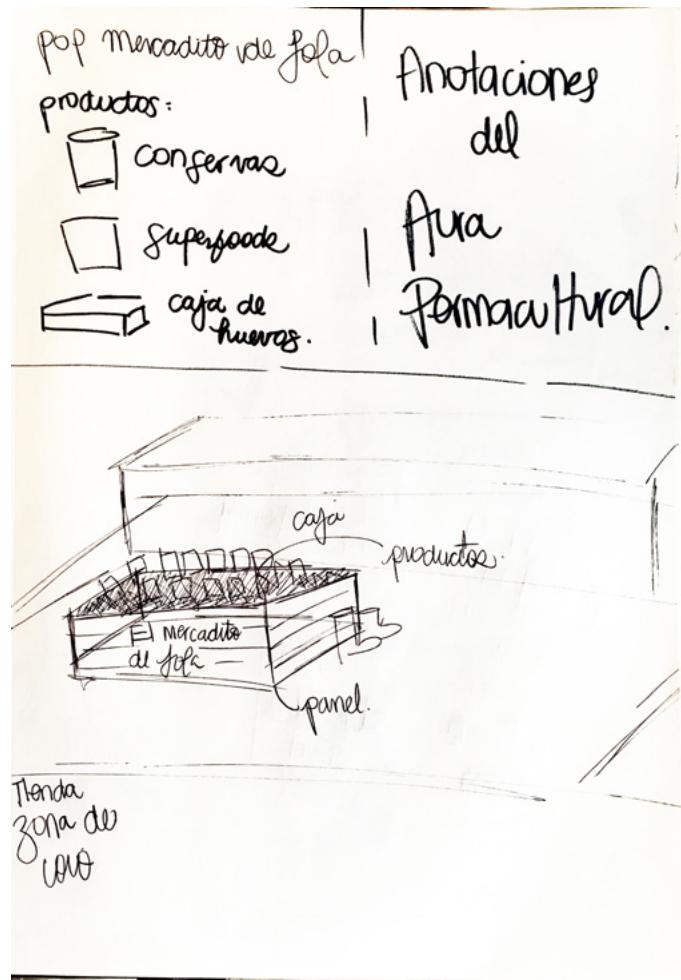 pop mercadito de Lola
productos:
conservas
superfoods
caja de
huevos.
Anotaciones
del
Aura
Permacultural.
caja
productos.
El mercadito
de Lola
panel.
Tienda
zona de